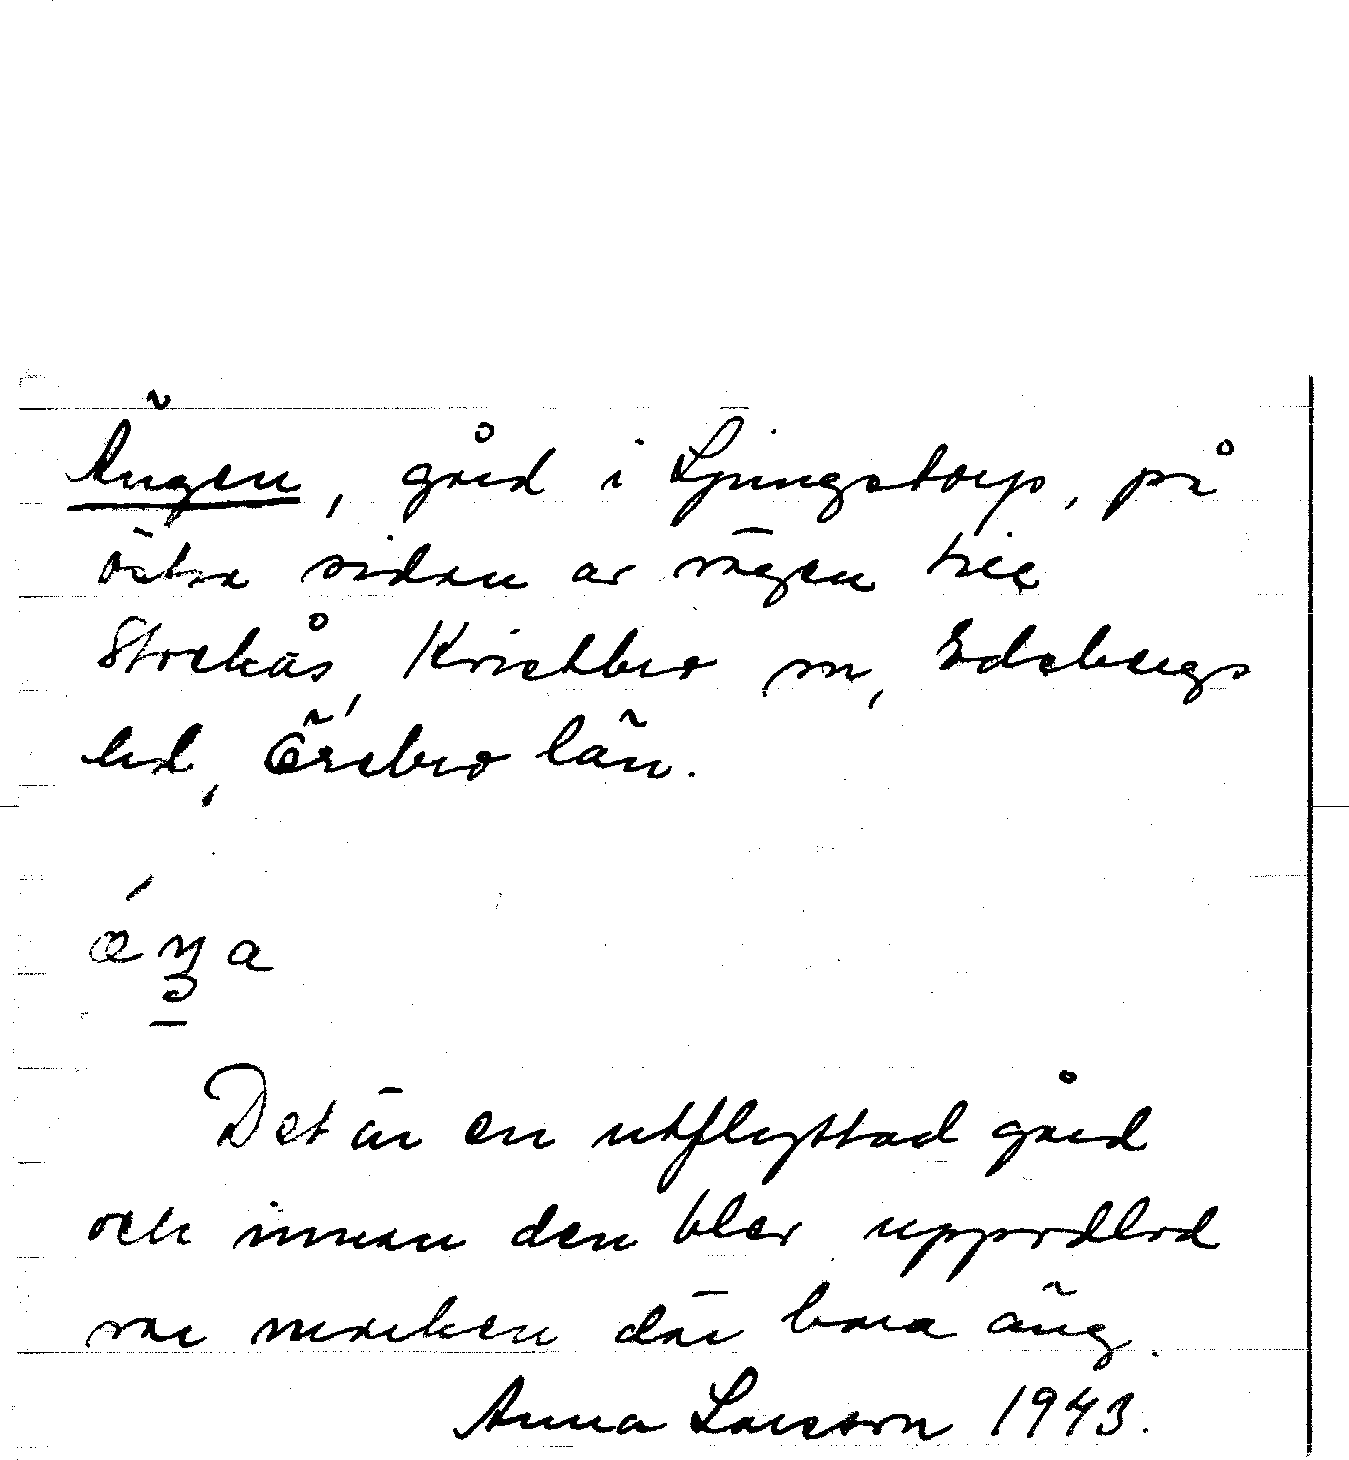 Ängen, gård i Ljungstorp, på
östra sidan av vägen till
Stockås, Kristbro sn, Edsbergs
hd, Örebro län.
ǽŋa
Det är en utflyttad gård
och innan den blev uppodlad
var marken där bara äng.
Anna Larsson 1943.